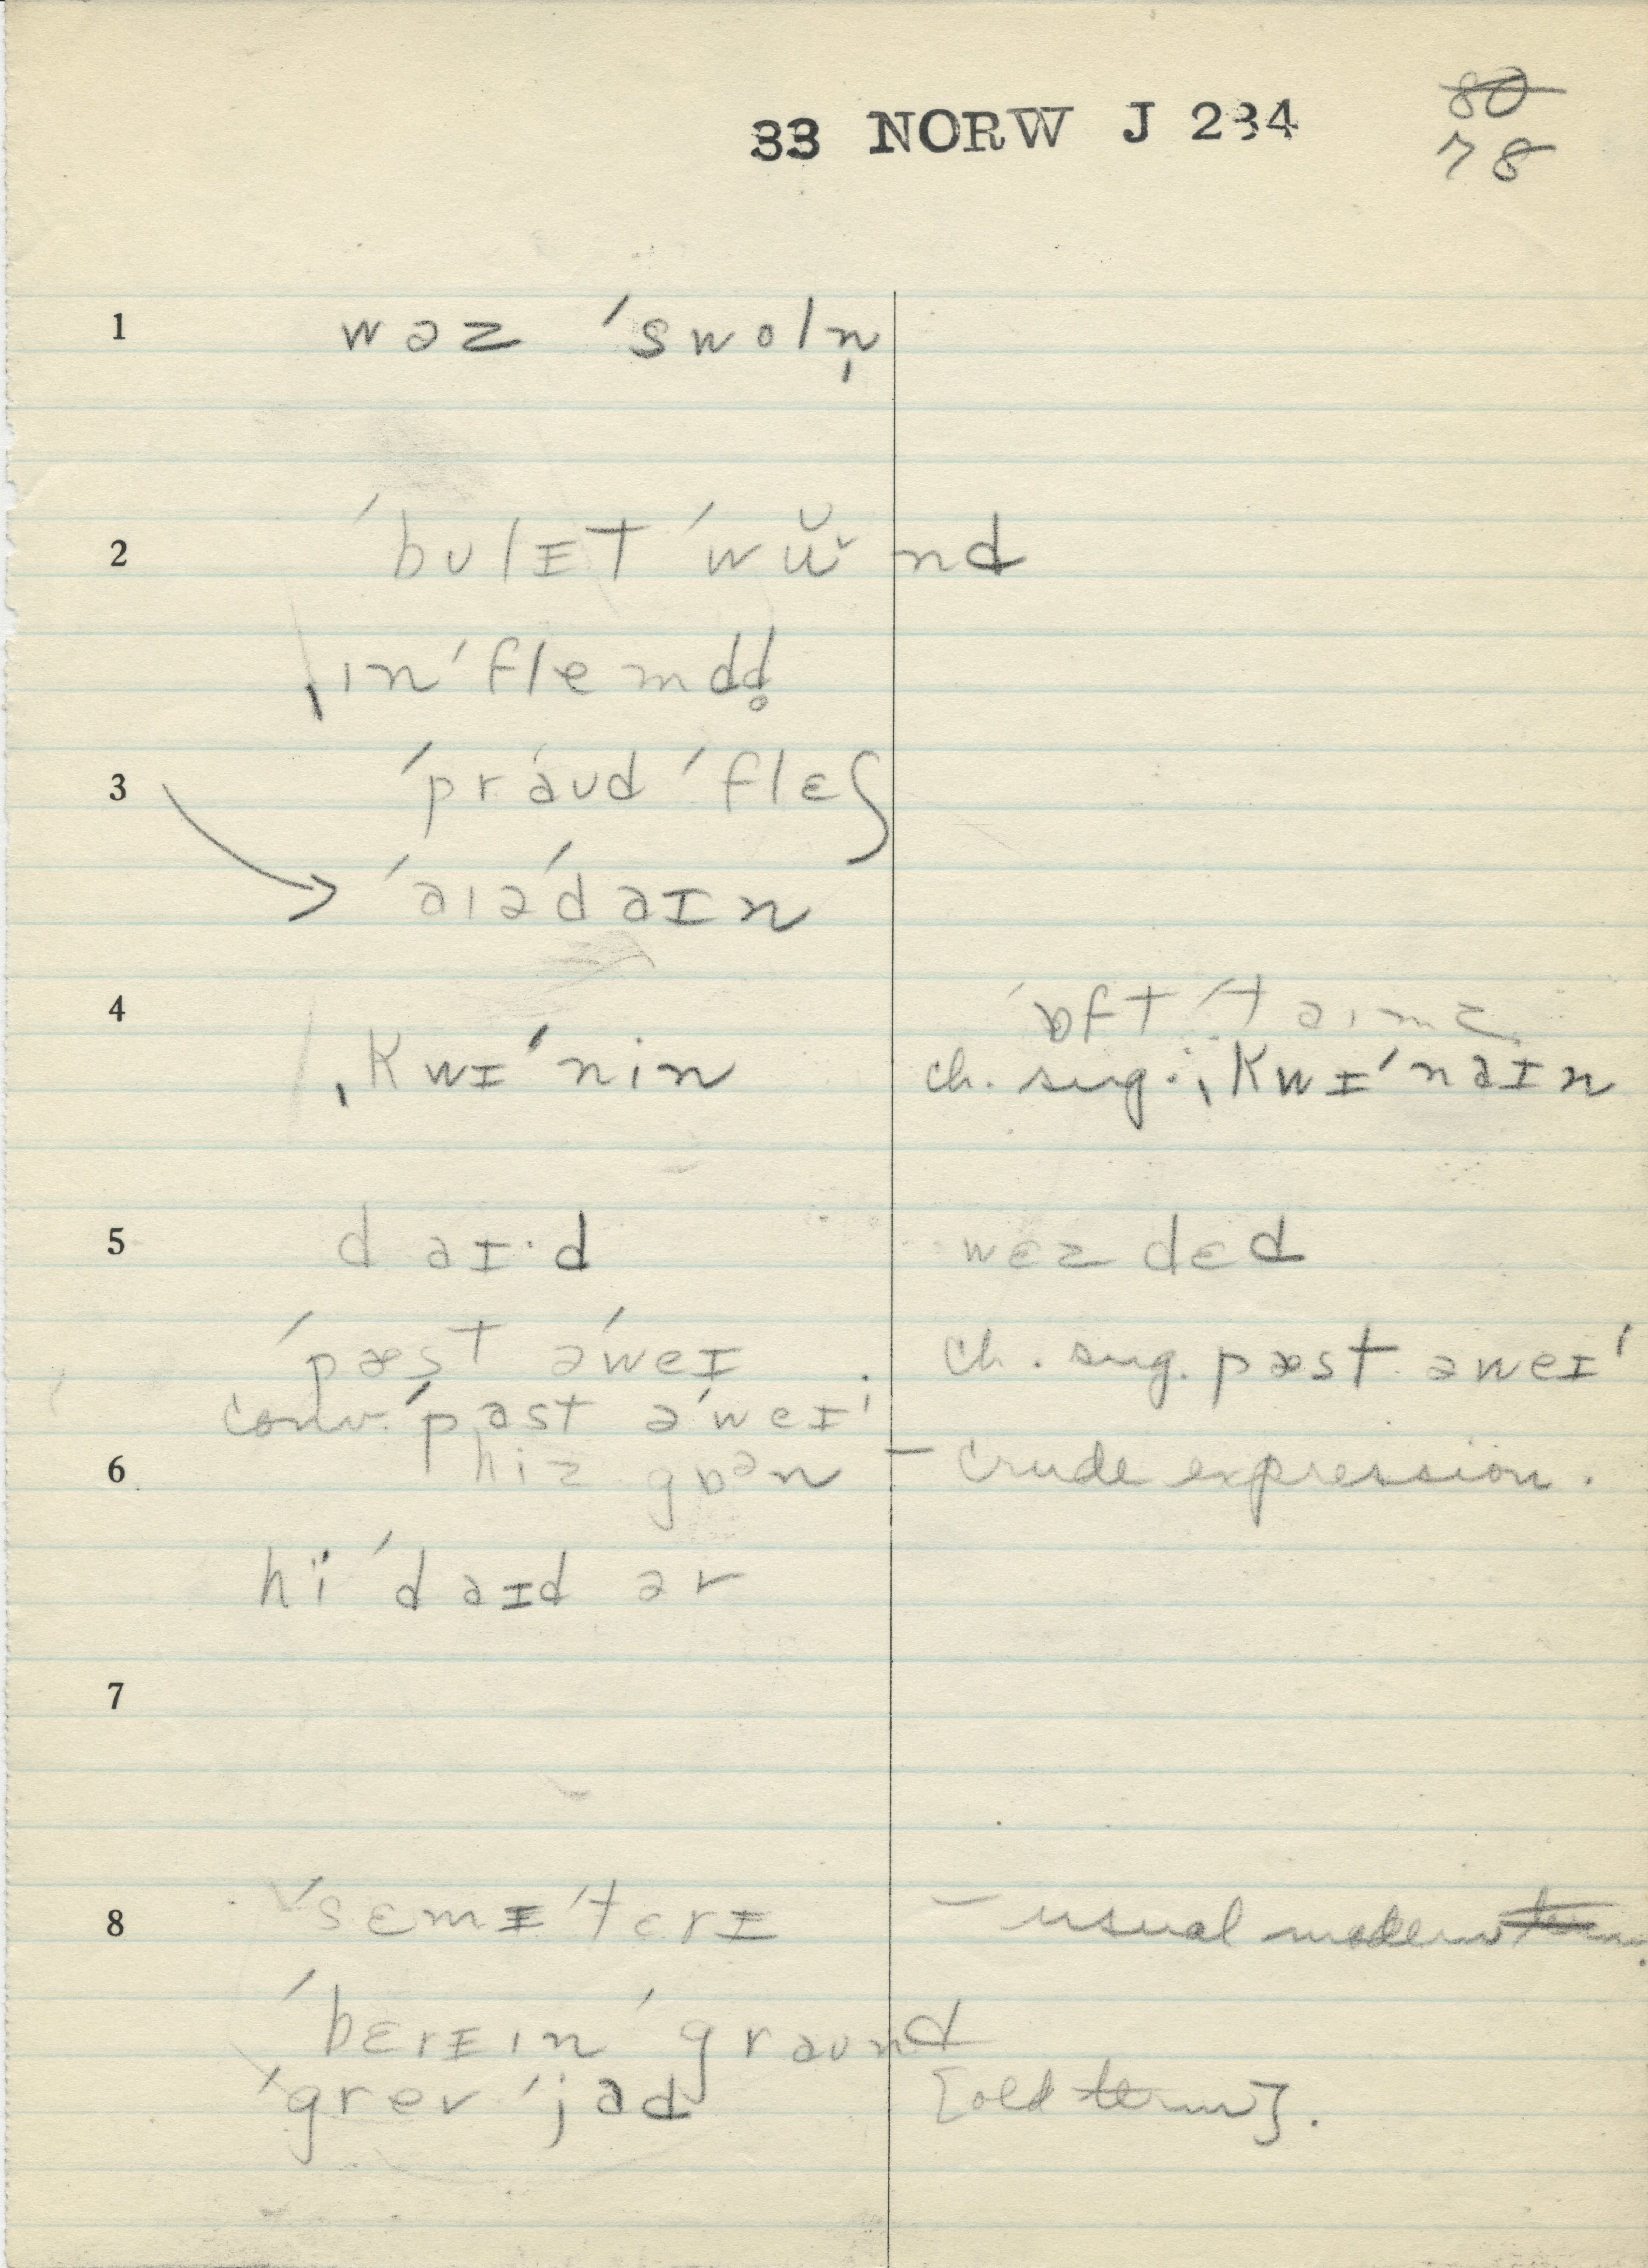 33 NORW J 234
80
78
1 wəz ˈswoln̩
2 ˈbulɪt ˈwŭˇnd
ˌınˈflemdd̥
3 ˈpraud ˈflɛʃ
ˈaıəˈdaɪn
4 ˈɒft ˈtaımz
ˌkwɪˈnin ch. sug. ˌkwɪˈnaɪn
5 daɪ·d wɛz dɛd
ˈpæst əˈweɪ ch. sug. pæst əweɪˈ
conv. ˈpast əˈweɪˈ
6 hiz gɒᵊn – crude expression.
hï ˈdaɪd ər
7
8 ˈsɛmɪˈtɛrɪ – usual modern term.
ˈbɛrɪın ˈgraund
ˈgrev ˈjad [old term].